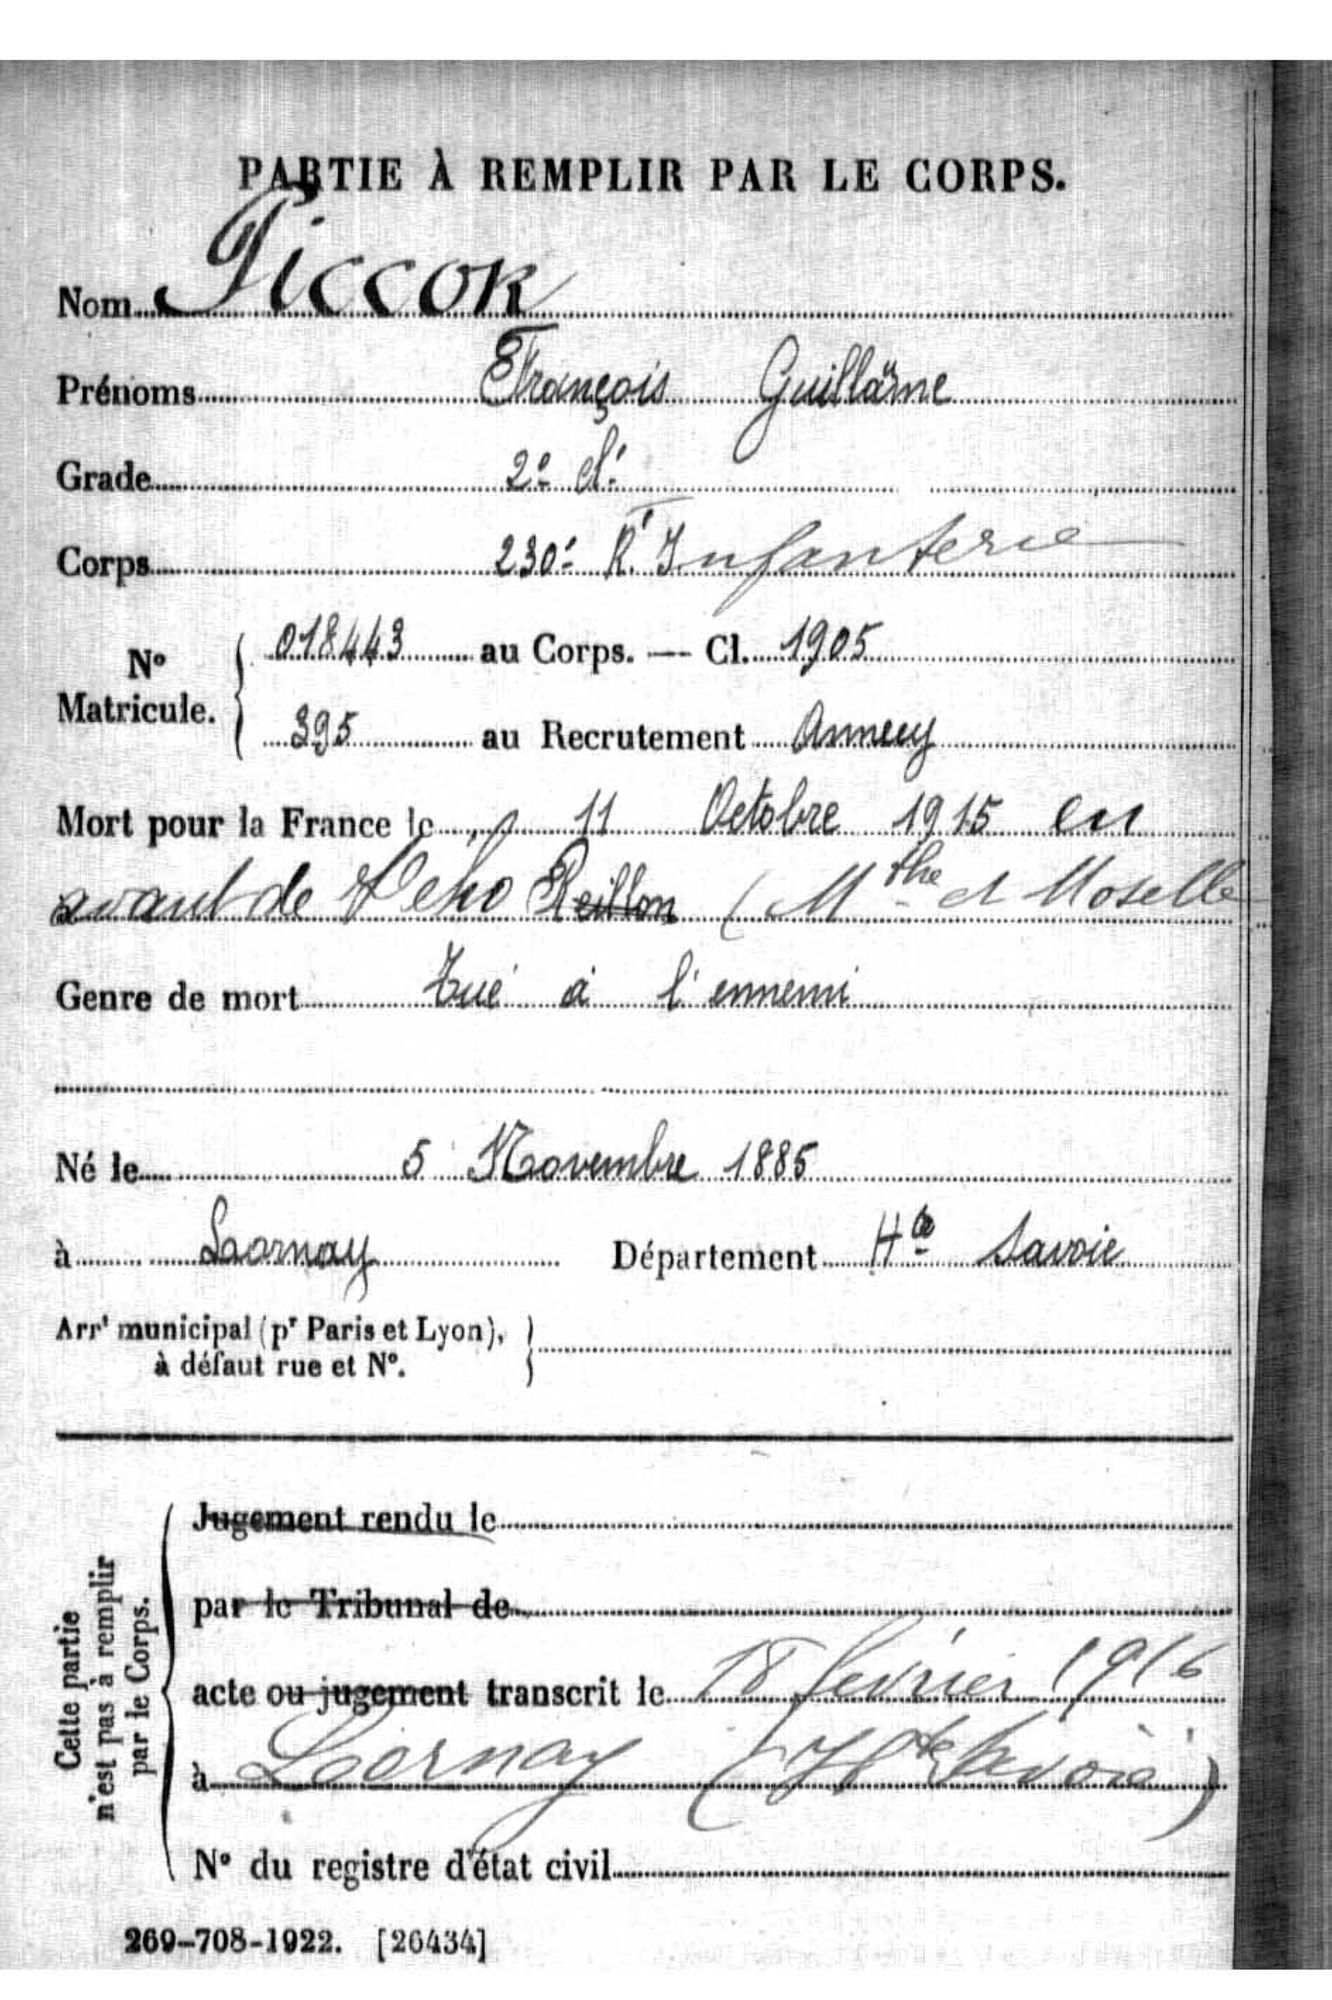 PARTIE À REMPLIR PAR LE CORPS.
Nom Piccok
Prénoms François Guilläme
Grade 2e cl.
Corps 230e R. Infanterie
N° Matricule. 018443 au Corps. — Cl. 1905
395 au Recrutement Annecy
Mort pour la France le 11 Octobre 1915 en
avant de Veho Reillon (Mthe et Moselle
Genre de mort Tué à l'ennemi
Né le 5 Novembre 1885
à Lornay Département Hte Savoie
Arrt municipal (pr Paris et Lyon),
à défaut rue et N°.
Cette partie
n'est pas à remplir
par le Corps.
Jugement rendu le
par le Tribunal de
acte ou jugement transcrit le 18 février 1916
à Lornay (Hte Savoie)
N° du registre d'état civil
269-708-1922. [26434]